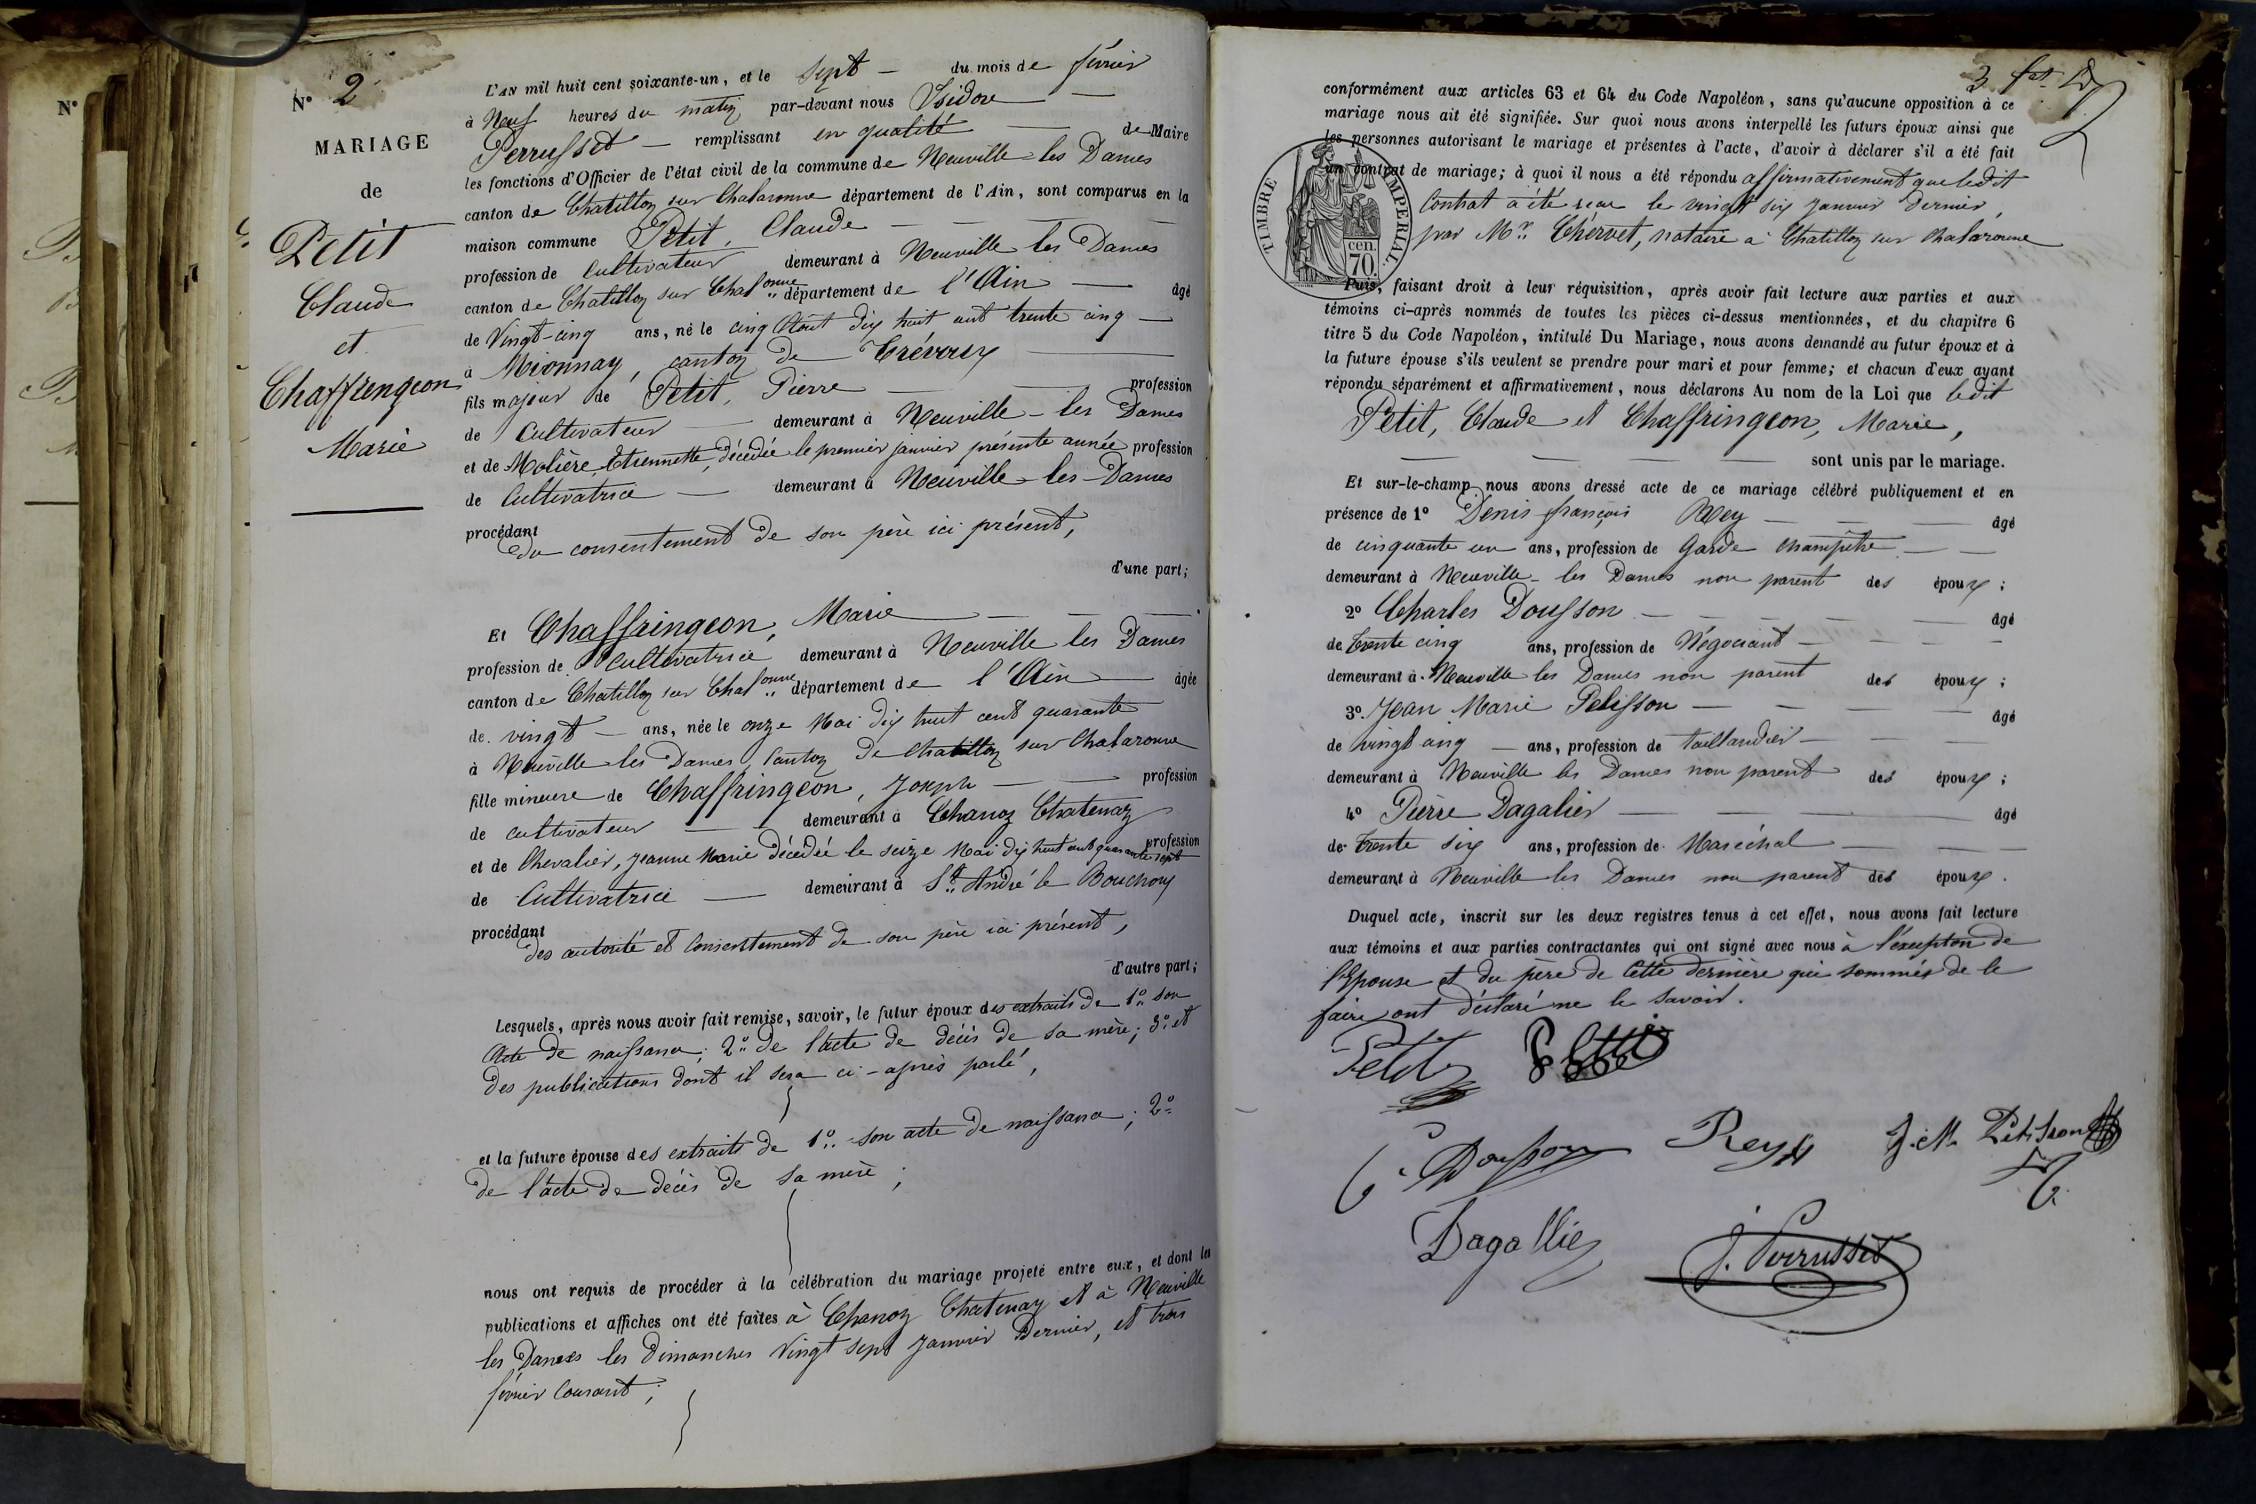 N° 2
MARIAGE
de
Petit
Claude
et
Chaffringeon
Marie
L'AN mil huit cent soixante-un, et le sept — du mois de février
à Neuf heures du matin par-devant nous Isidore —
Perrusset — remplissant en qualité — de Maire
les fonctions d'Officier de l'état civil de la commune de Neuville-les Dames
canton de Chatillon sur Chalaronne département de l'Ain, sont comparus en la
maison commune Petit, Claude —
profession de Cultivateur demeurant à Neuville les Dames
canton de Chatillon sur Chalonne département de l'Ain — âgé
de Vingt-cinq ans, né le cinq Août dix huit cent trente cinq —
à Mionnay, canton de Trévoux —
fils majeur de Petit, Pierre — profession
de Cultivateur — demeurant à Neuville-les Dames
et de Molière Etiennette, décédée le premier janvier présente année profession
de Cultivatrice — demeurant à Neuville-les-Dames
procédant
du consentement de son père ici présent,
d'une part;
Et Chaffringeon, Marie —
profession de Cultivatrice demeurant à Neuville les Dames
canton de Chatillon sur Chalonne département de l'Ain — âgée
de vingt — ans, née le onze Mai dix huit cent quarante
à Neuville les Dames, Canton de Chatillon sur Chalaronne
fille mineure de Chaffringeon, Joseph — profession
de cultivateur — demeurant à Chanoz Chatenay
et de Chevalier, Jeanne Marie décédée le seize Mai dix huit cent quarante sept profession
de Cultivatrice — demeurant à St André le Bouchoux
procédant
des autorité et Consentement de son père ici présent,
d'autre part;
Lesquels, après nous avoir fait remise, savoir, le futur époux des extraits de 1° son
Acte de naissance; 2° de l'acte de décès de sa mère; 3° et
des publications dont il sera ci-après parlé,
et la future épouse des extraits de 1° son acte de naissance; 2°
de l'acte de décès de sa mère;
nous ont requis de procéder à la célébration du mariage projeté entre eux, et dont les
publications et affiches ont été faites à Chanoz Chatenay et à Neuville
les Dames les Dimanches Vingt sept Janvier Dernier, et trois
février Courant;
3
conformément aux articles 63 et 64 du Code Napoléon, sans qu'aucune opposition à ce
mariage nous ait été signifiée. Sur quoi nous avons interpellé les futurs époux ainsi que
les personnes autorisant le mariage et présentes à l'acte, d'avoir à déclarer s'il a été fait
un contrat de mariage; à quoi il nous a été répondu affirmativement que ledit
Contrat a été reçu le vingt six janvier dernier,
par Mr Chervet, notaire à Chatillon sur Chalaronne
TIMBRE IMPERIAL
70 cen.
Puis, faisant droit à leur réquisition, après avoir fait lecture aux parties et aux
témoins ci-après nommés de toutes les pièces ci-dessus mentionnées, et du chapitre 6
titre 5 du Code Napoléon, intitulé Du Mariage, nous avons demandé au futur époux et à
la future épouse s'ils veulent se prendre pour mari et pour femme; et chacun d'eux ayant
répondu séparément et affirmativement, nous déclarons Au nom de la Loi que ledit
Petit, Claude et Chaffringeon, Marie,
— sont unis par le mariage.
Et sur-le-champ nous avons dressé acte de ce mariage célébré publiquement et en
présence de 1° Denis François Rey — âgé
de cinquante un ans, profession de Garde champêtre —
demeurant à Neuville-les Dames non parent des époux;
2° Charles Dousson — âgé
de trente cinq ans, profession de Négociant —
demeurant à Neuville les Dames non parent des époux;
3° Jean Marie Pelisson — âgé
de vingt cinq — ans, profession de taillandier —
demeurant à Neuville les Dames non parent des époux;
4° Pierre Dagalier — âgé
de trente six ans, profession de Maréchal —
demeurant à Neuville les Dames non parent des époux.
Duquel acte, inscrit sur les deux registres tenus à cet effet, nous avons fait lecture
aux témoins et aux parties contractantes qui ont signé avec nous à l'exception de
l'Epouse et du père de Cette dernière qui sommés de le
faire ont déclaré ne le savoir.
Petit P Petit
C. Dousson Rey J. M. Pelisson
Dagallier J. Perrusset